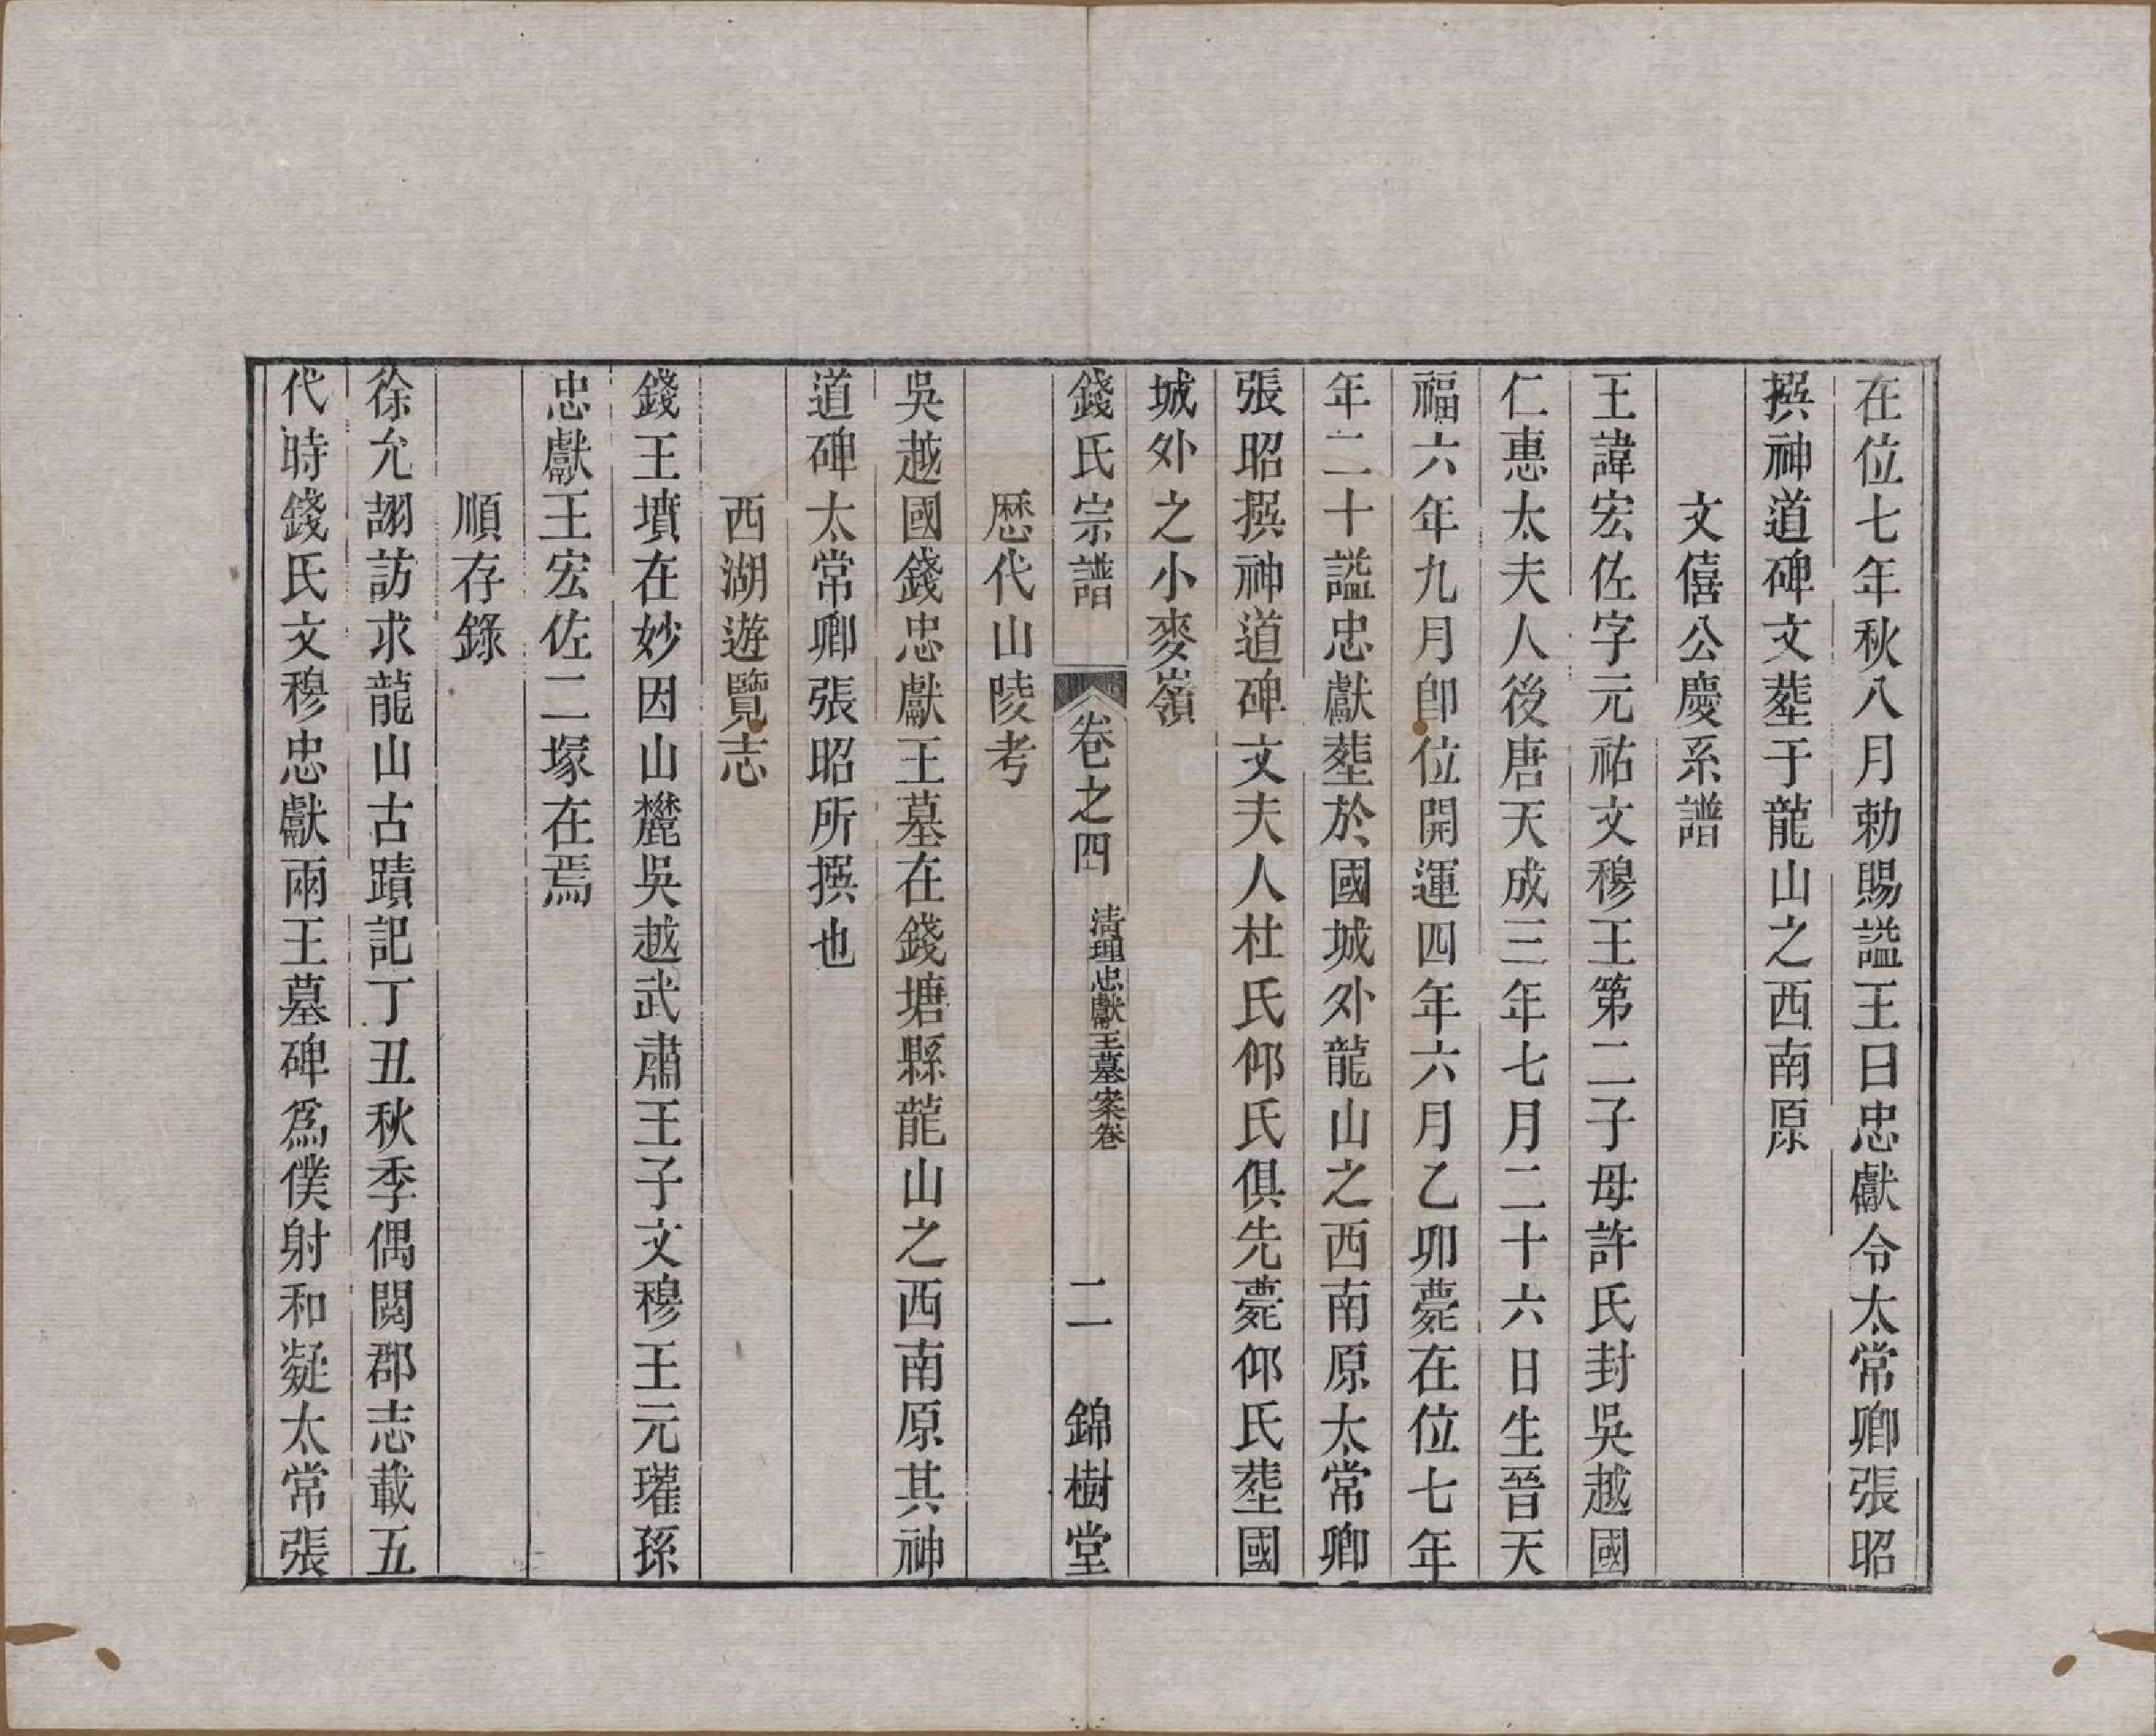 在位七年秋八月勅賜諡王曰忠獻令太常卿張昭
撰神道碑文塟于龍山之西南原
文僖公慶系譜
王諱宏佐字元祐文穆王第二子母許氏封吳越國
仁惠太夫人後唐天成三年七月二十六日生晉天
福六年九月卽位開運四年六月乙卯薨在位七年
年二十諡忠獻塟於國城外龍山之西南原太常卿
張昭撰神道碑文夫人杜氏仰氏俱先薨仰氏塟國
城外之小麥嶺
錢氏宗譜 卷之四 清理忠獻王墓案卷 二 錦樹堂
歷代山陵考
吳越國錢忠獻王墓在錢塘縣龍山之西南原其神
道碑太常卿張昭所撰也
西湖遊覽志
錢王墳在妙因山麓吳越武肅王子文穆王元瓘孫
忠獻王宏佐二塚在焉
順存錄
徐允翮訪求龍山古蹟記丁丑秋季偶閱郡志載五
代時錢氏文穆忠獻兩王墓碑爲僕射和凝太常張